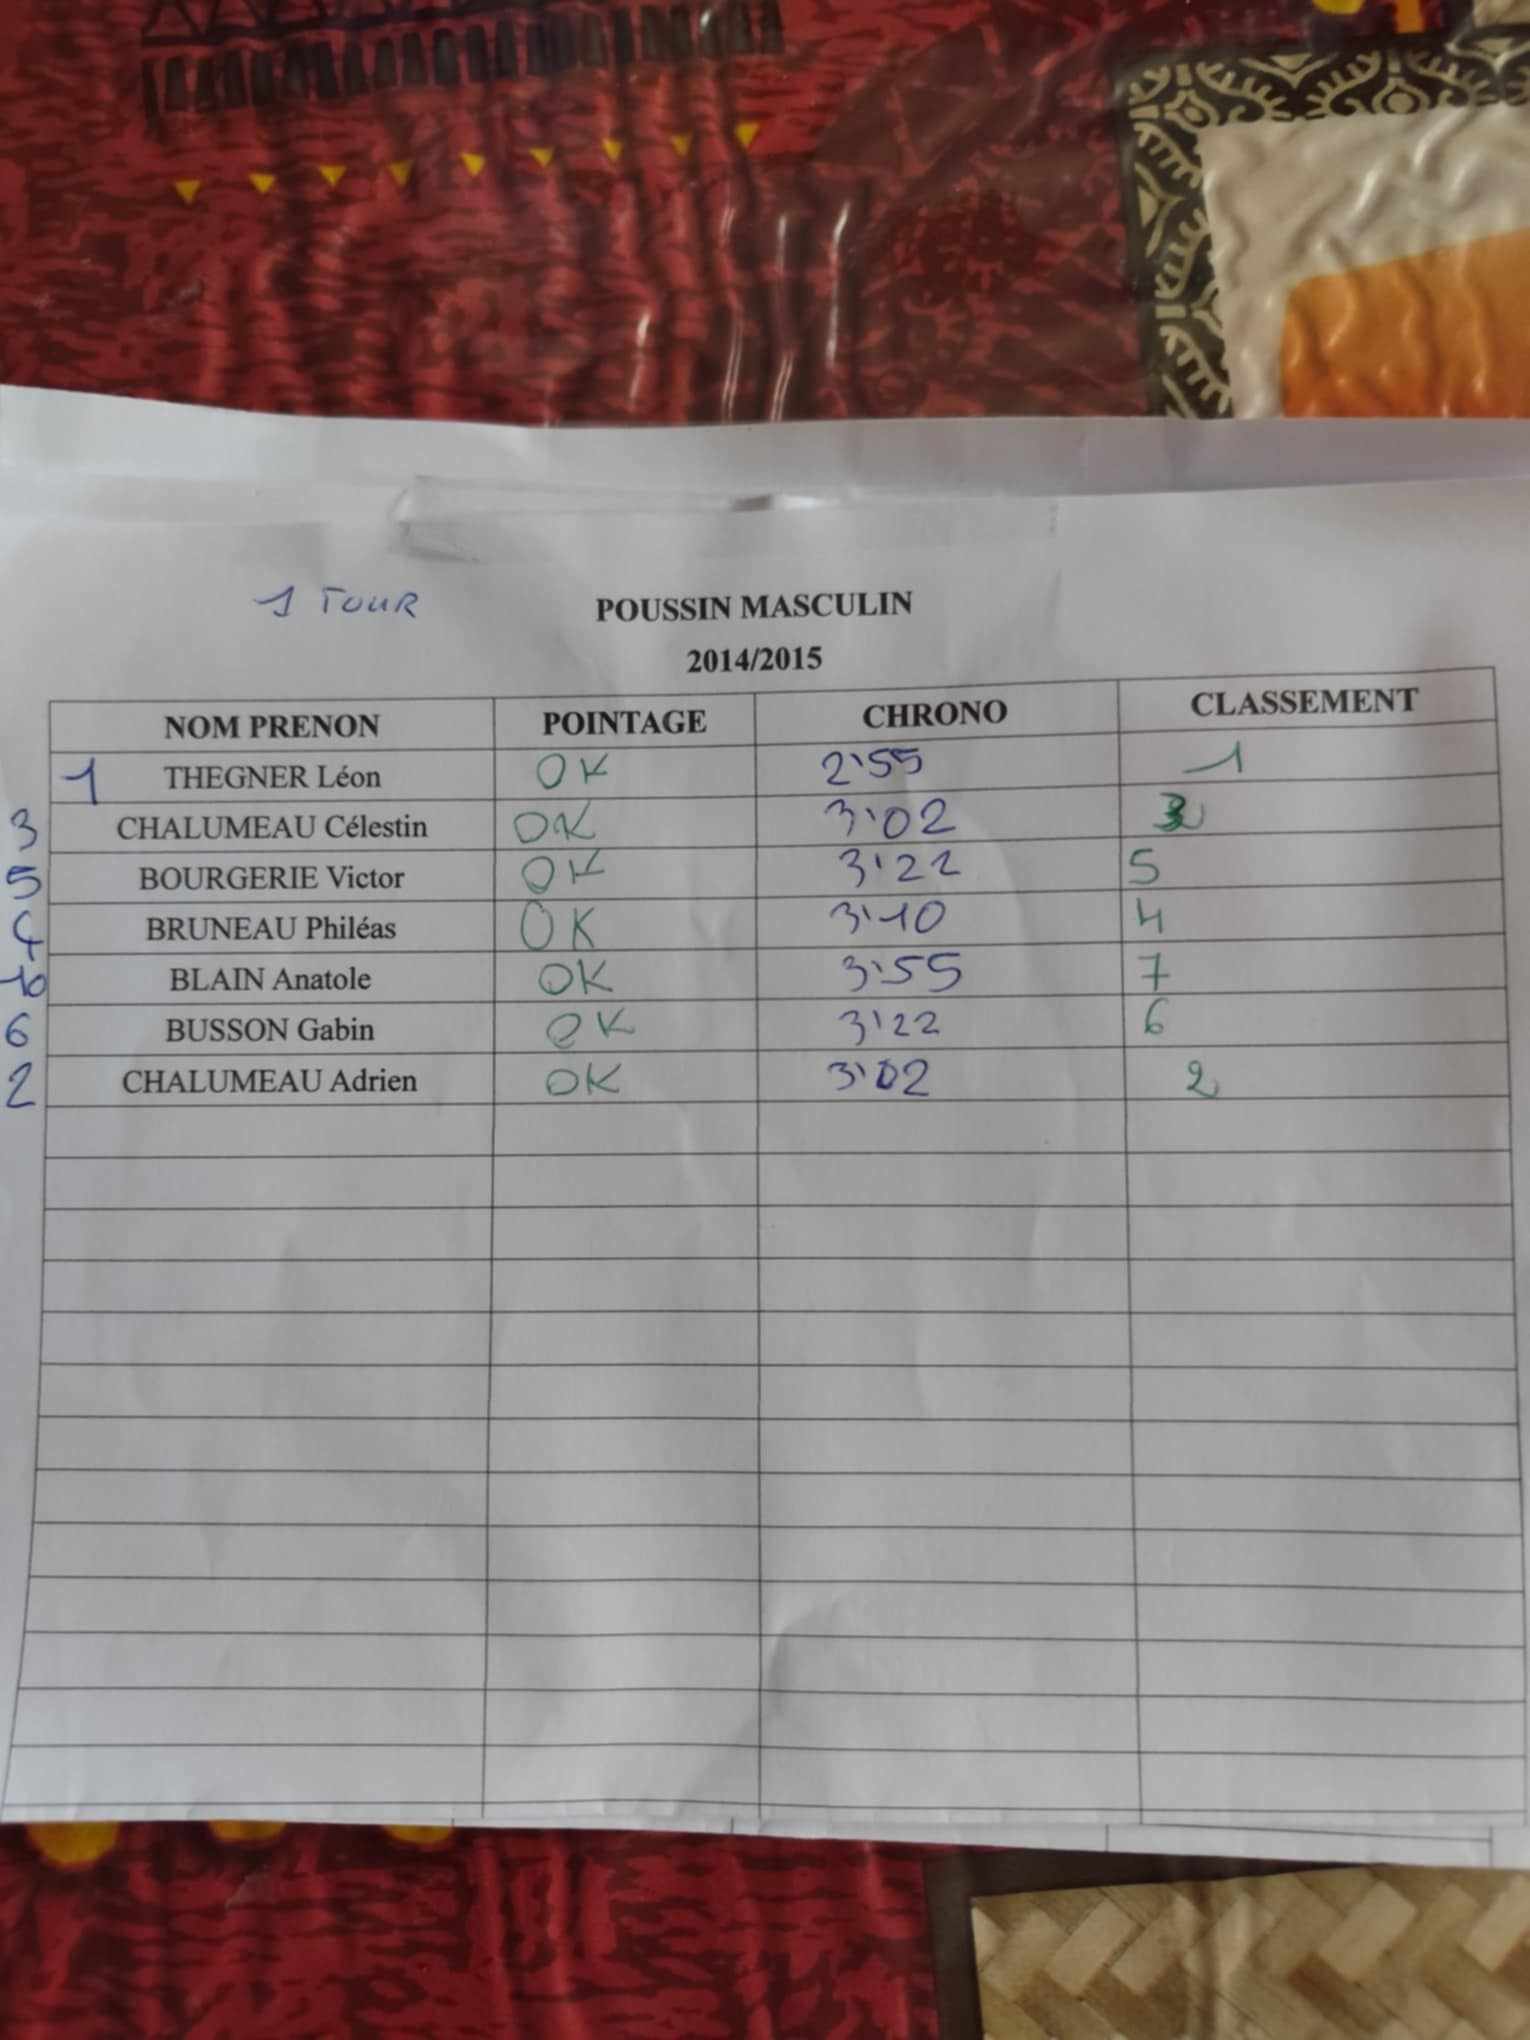 1 TOUR POUSSIN MASCULIN
2014/2015
NOM PRENON POINTAGE CHRONO CLASSEMENT
1 THEGNER Léon OK 2'55 1
3 CHALUMEAU Célestin OK 3'02 3
5 BOURGERIE Victor OK 3'22 5
4 BRUNEAU Philéas OK 3'10 4
10 BLAIN Anatole OK 3'55 7
6 BUSSON Gabin OK 3'22 6
2 CHALUMEAU Adrien OK 3'02 2